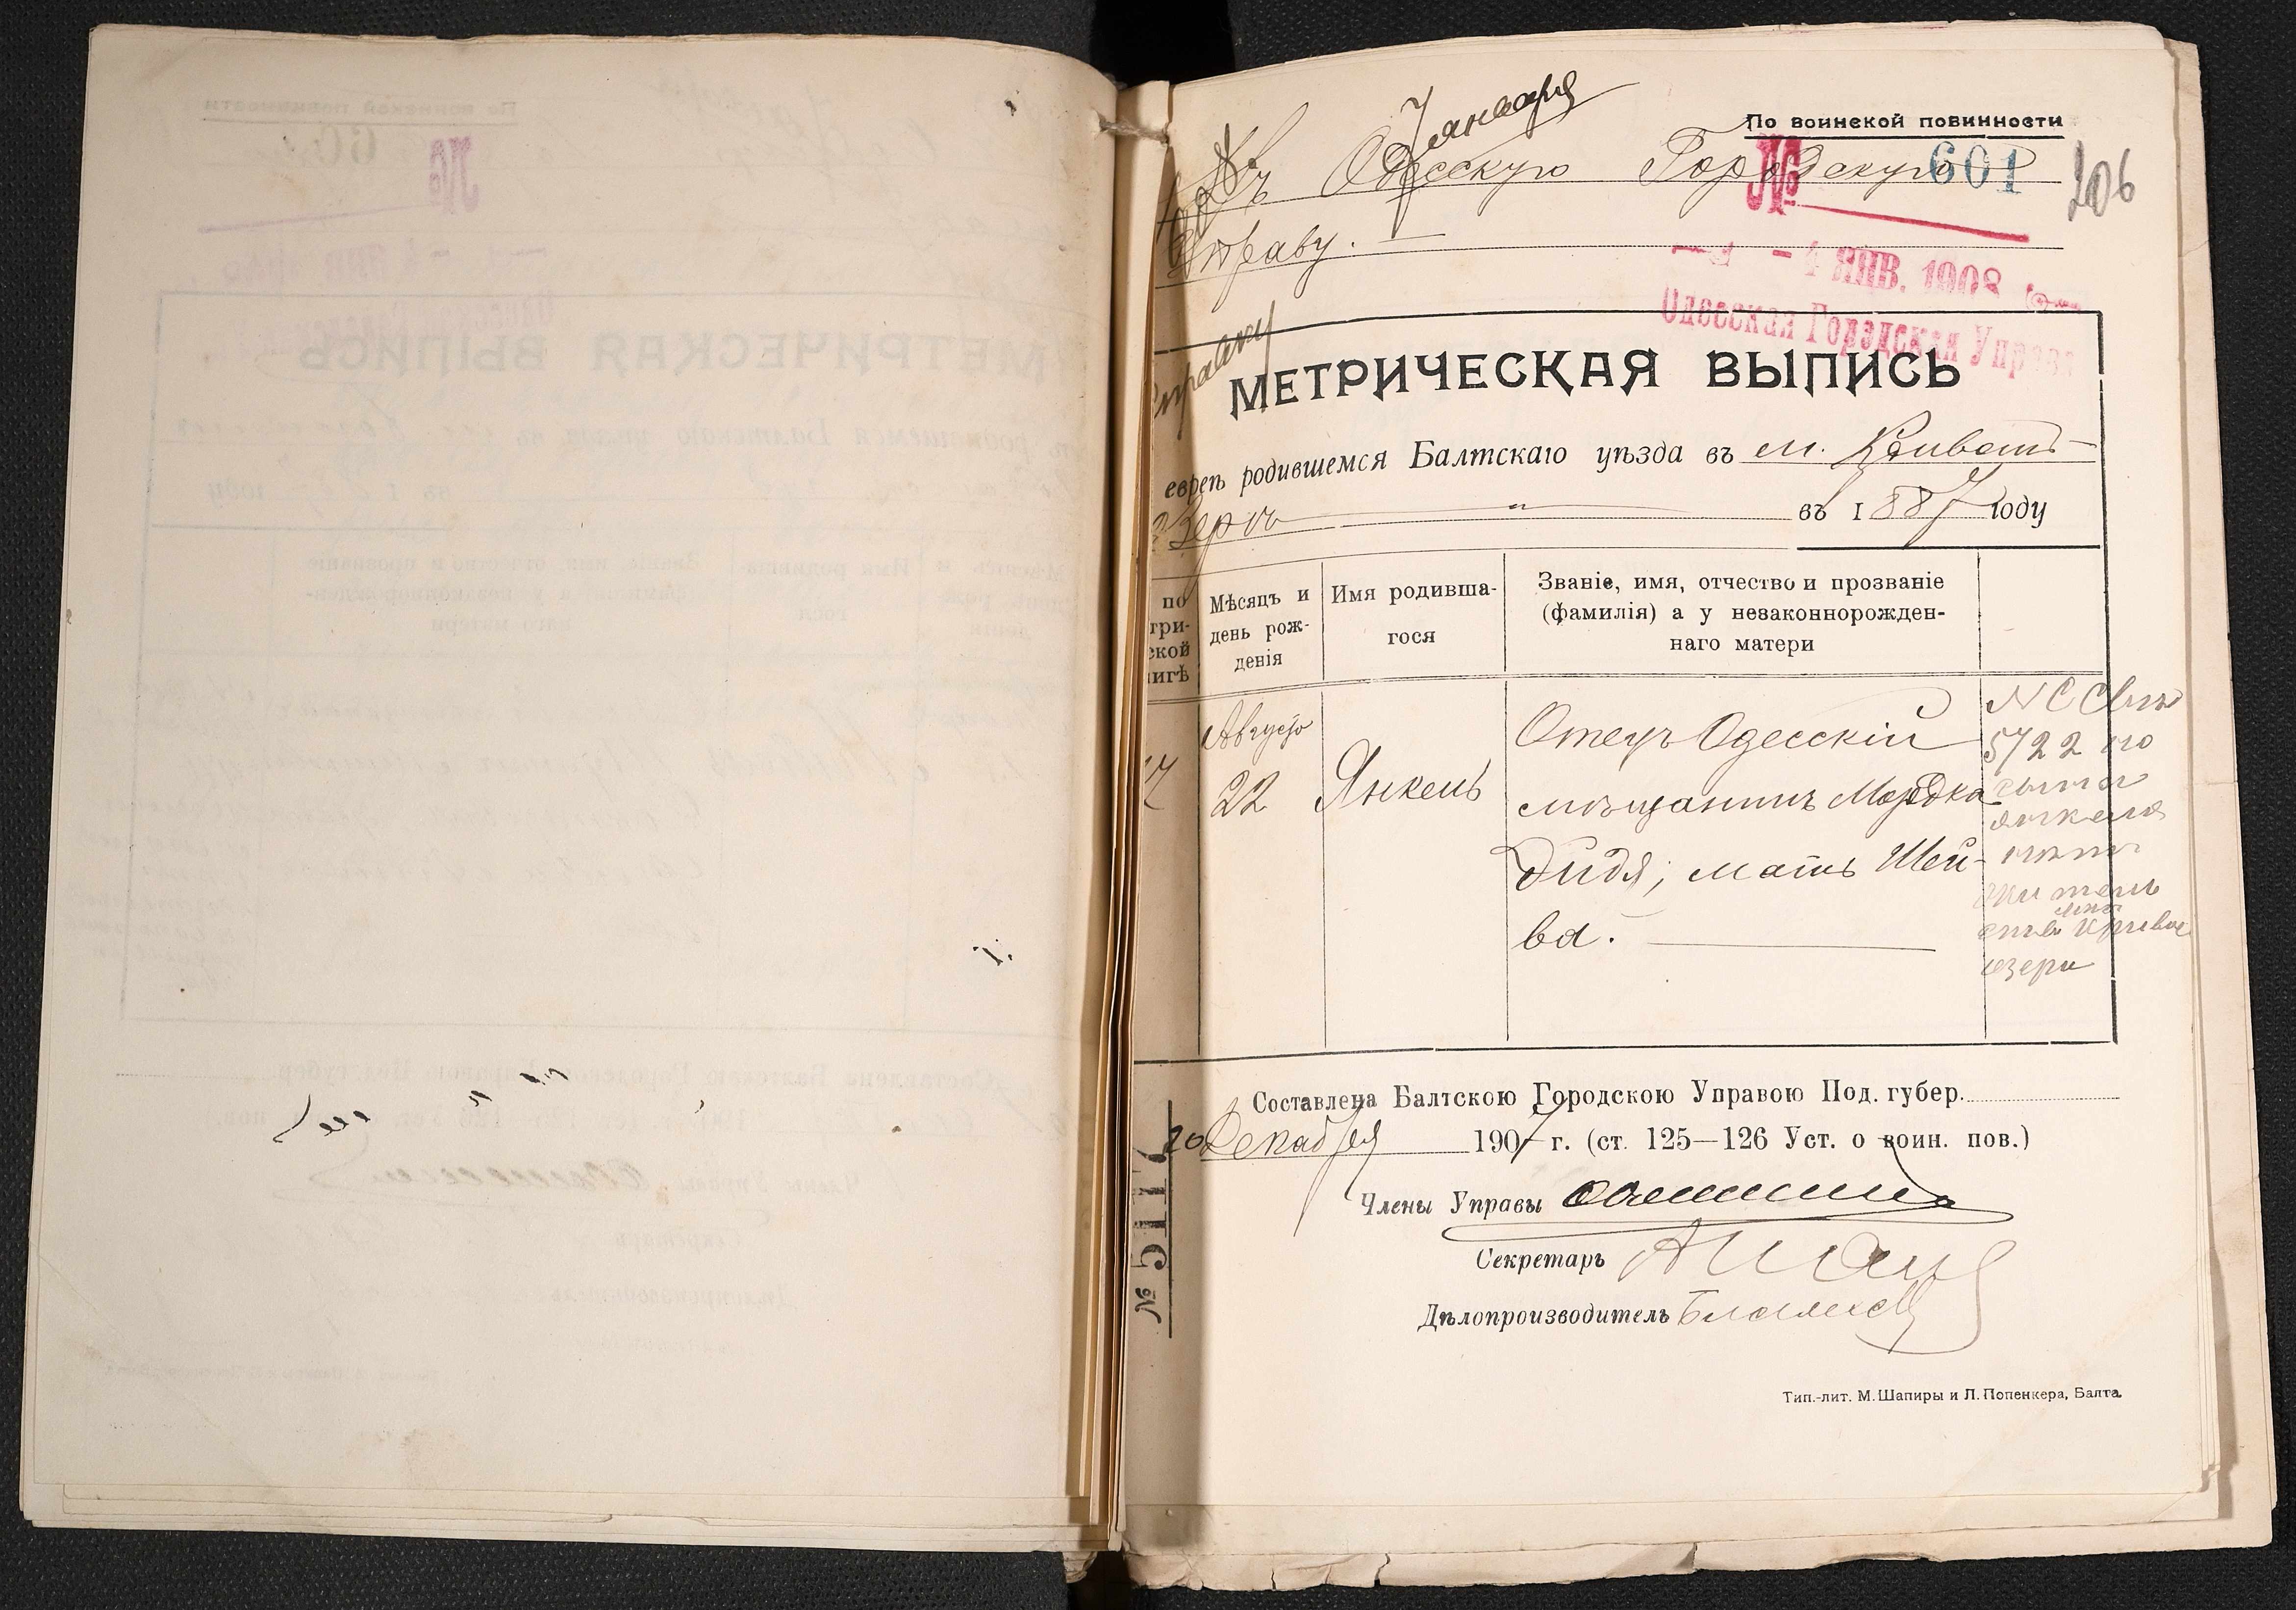 По воинской повинности
7 января
Въ Одесскую Городскую
№ 601
206
Управу.
- 4 ЯНВ. 1908
Одесская Городская Управа
МЕТРИЧЕСКАЯ ВЫПИСЬ
евреѣ родившемся Балтскаго уѣзда въ м. Кривомъ
Озерѣ въ 1887 году
по
три-
ской
нигѣ
Мѣсяцъ и
день рож-
денія
Имя родивша-
гося
Званіе, имя, отчество и прозваніе
(фамилія) а у незаконнорожден-
наго матери
Августа
22
Янкель
Отецъ Одесскій
мѣщанинъ Мордка
Дидя; мать Шей-
ва.
5722 по
сына
янкеля
житель
ств Кривое
озеро
Составлена Балтскою Городскою Управою Под. губер.
20 Декабря 1907 г. (ст. 125—126 Уст. о воин. пов.)
Члены Управы
Секретарь
Дѣлопроизводитель
№ 5117
Тип.-лит. М. Шапиры и Л. Попенкера, Балта.